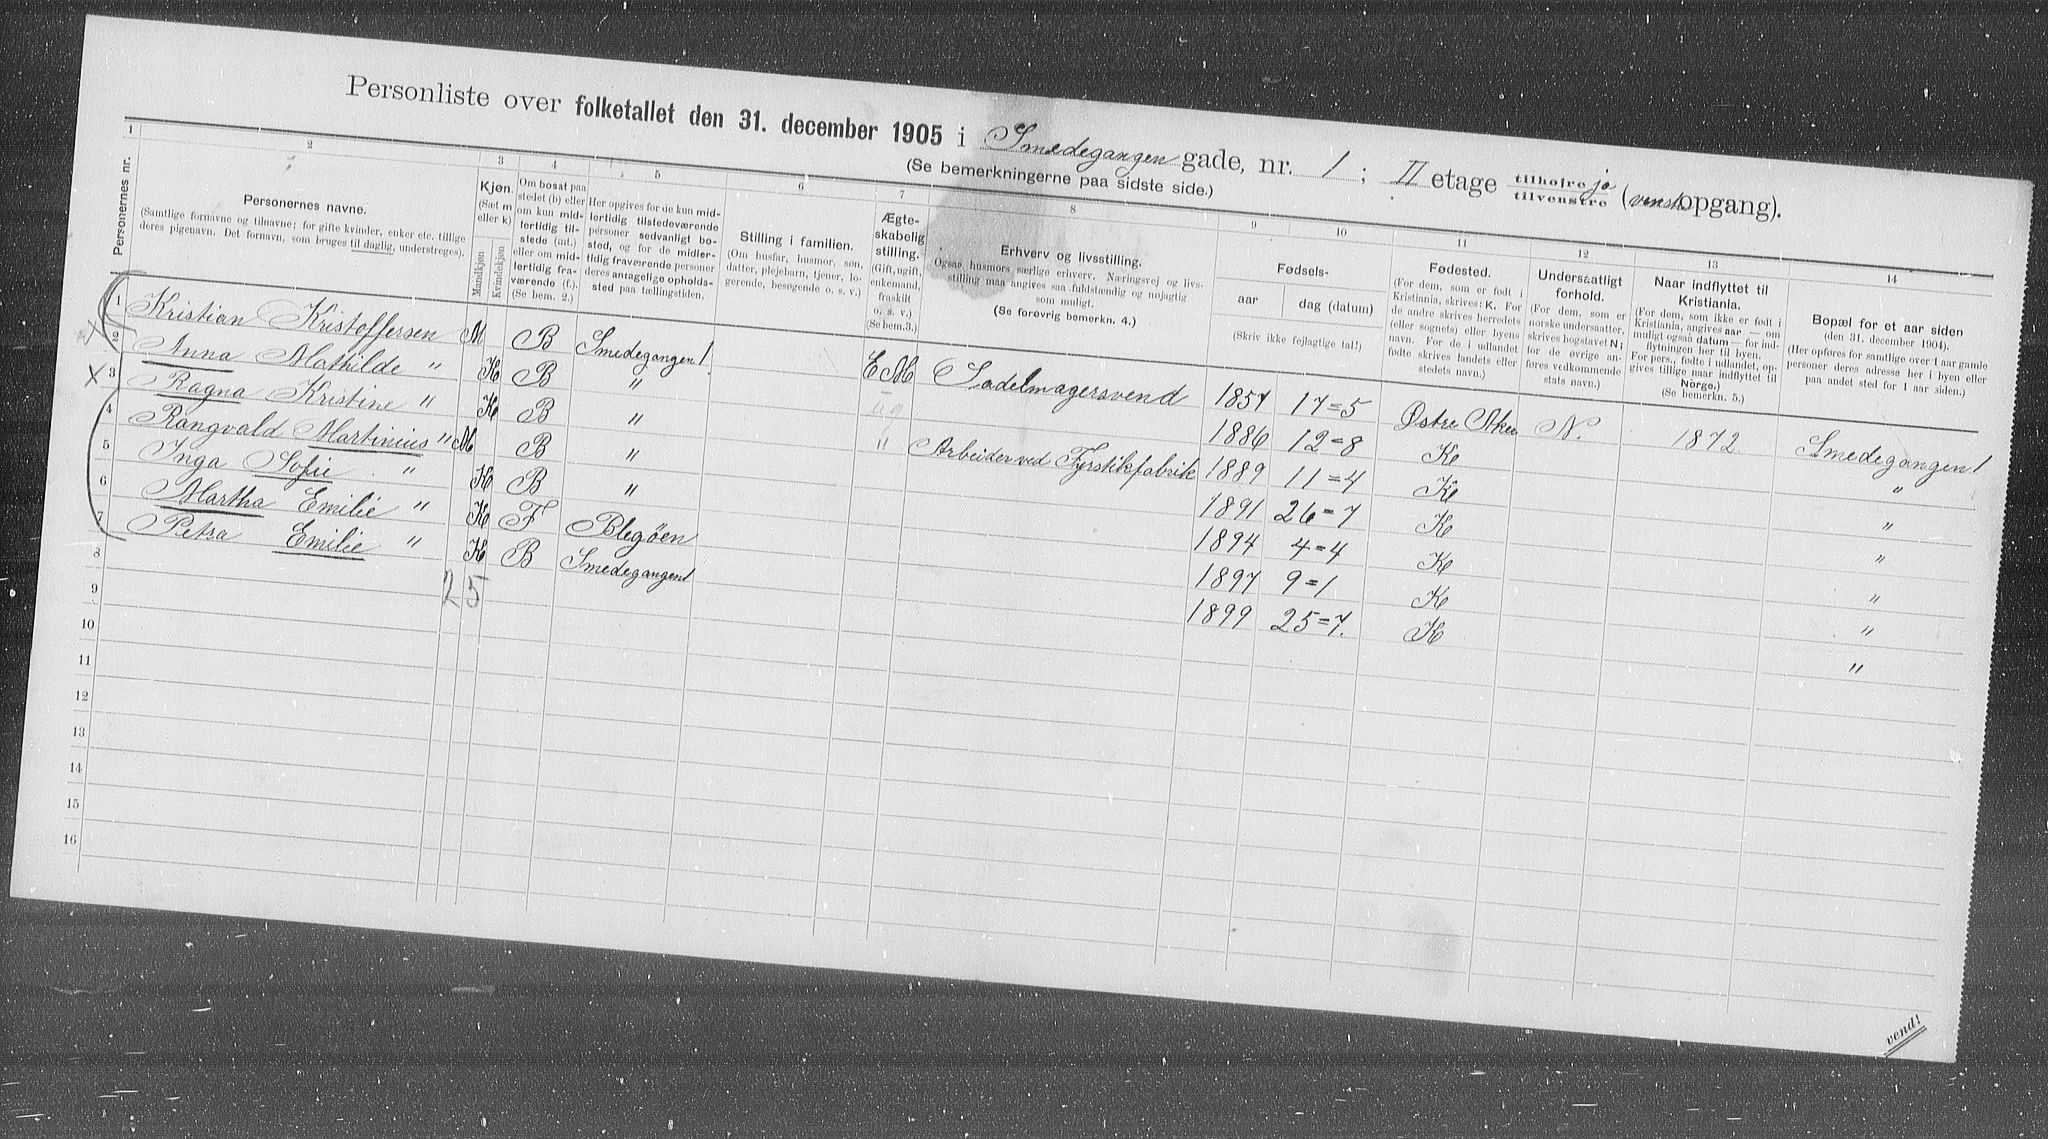 Personliste over folketallet den 31. december 1905 i Smedegangen gade, nr. 1 ; II etage tilhøjre ja tilvenstre (venstre opgang).
(Se bemerkningerne paa sidste side.)
1 2 3 4 5 6 7 8 9 10 11 12 13 14
Personernes nr.
Personernes navne.
(Samtlige fornavne og tilnavne; for gifte kvinder, enker etc. tillige
deres pigenavn. Det fornavn, som bruges til daglig, understreges).
Kjøn.
(Sæt m
eller k)
Mandkjøn
Kvindekjøn
Om bosat paa
stedet (b) eller
om kun mid-
lertidig til-
stede (mt.)
eller om mid-
lertidig fra-
værende (f.).
(Se bem. 2.)
Her opgives for de kun mid-
lertidig tilstedeværende
personer sedvanligt bo-
sted, og for de midler-
tidig fraværende personer
deres antagelige opholds-
sted paa tællingstiden.
Stilling i familien.
(Om husfar, husmor, søn,
datter, plejebarn, tjener, lo-
gerende, besøgende o. s. v.)
Ægte-
skabelig
stilling.
(Gift, ugift,
enkemand,
fraskilt
o. s. v.)
(Se bem. 3.)
Erhverv og livsstilling.
Ogsaa husmors særlige erhverv. Næringsvej og livs-
stilling maa angives saa fuldstændig og nøjagtig
som muligt.
(Se forøvrig bemerkn. 4.)
Fødsels-
aar dag (datum)
(Skriv ikke fejlagtige tal!)
Fødested.
(For dem, som er født i
Kristiania, skrives: K. For
de andre skrives herredets
(eller sognets) eller byens
navn. For de i udlandet
fødte skrives landets eller
stedets navn.)
Undersaatligt
forhold.
(For dem, som er
norske undersaatter,
skrives bogstavet N;
for de øvrige an-
føres vedkommende
stats navn.)
Naar indflyttet til
Kristiania.
(For dem, som ikke er født i
Kristiania, angives aar — om
muligt ogsaa datum — for ind-
flytningen her til byen.
For pers., fødte i udlandet, op-
gives tillige naar indflyttet til
Norge.)
(Se bemerkn. 5.)
Bopæl for et aar siden
(den 31. december 1904).
(Her opføres for samtlige over 1 aar gamle
personer deres adresse her i byen eller
paa andet sted for 1 aar siden.)
1 Kristian Kristoffersen M B Smedegangen 1 E M Sadelmagersvend 1857 17=5 Østre Aker N. 1872. Smedegangen 1
2 Anna Mathilde " K B " ug 1886 12=8 K "
3 Ragna Kristine " K B " " Arbeider ved Fyrstikfabrik 1889 11=4 K "
4 Rangvald Martinius " M B " 1891 26=7 K "
5 Inga Sofie " K B " 1894 4=4 K "
6 Martha Emilie " K F Blegøen 1897 9=1 K "
7 Petra Emilie " K B Smedegangen 1 1899 25=7. K "
8
25
9
10
11
12
13
14
15
16
vend!